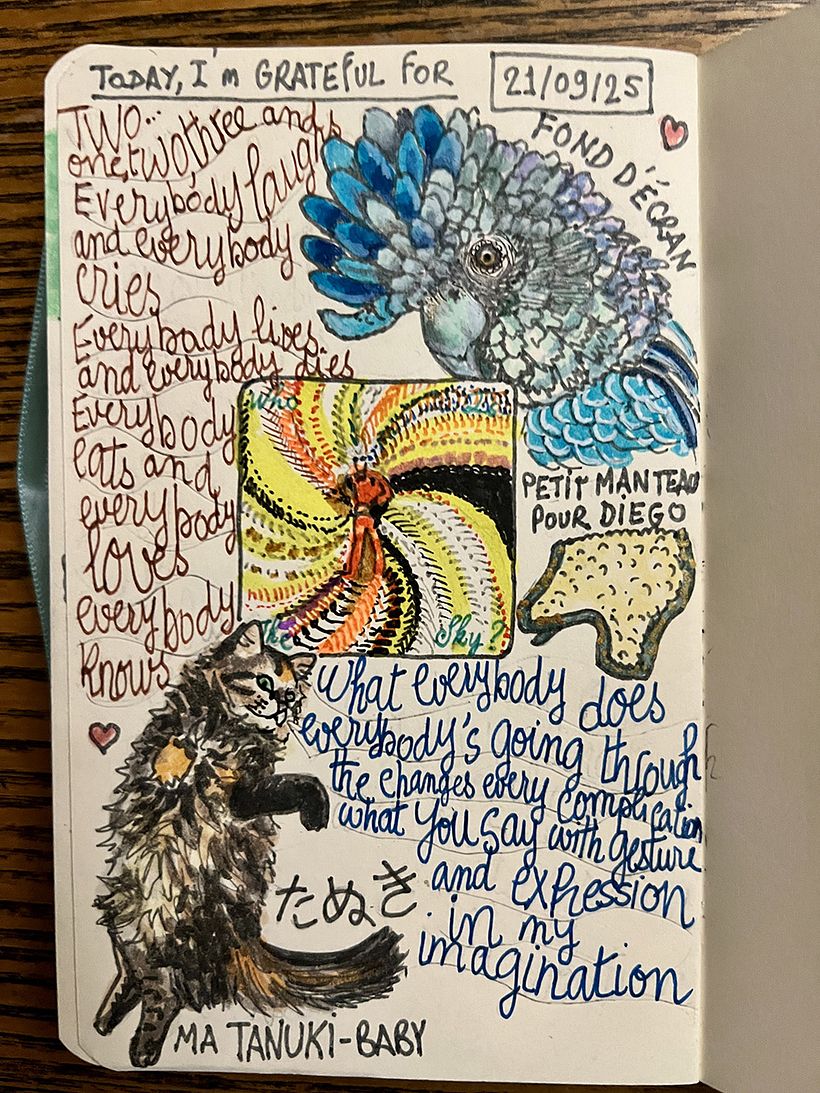 TODAY, I'm GRATEFUL FOR
21/09/25
TWO... and
one, two, three and
Everybody laughs
and everybody
cries
Everybody lives
and everybody dies
Everybody
eats and
everybody
loves
everybody
knows
FOND D'ÉCRAN
Who
The Sky?
PETIT MANTEAU
POUR DIEGO
What everybody does
everybody's going through
the changes every complication
what you say with gesture
and expression
in my
imagination
たぬき
MA TANUKI-BABY